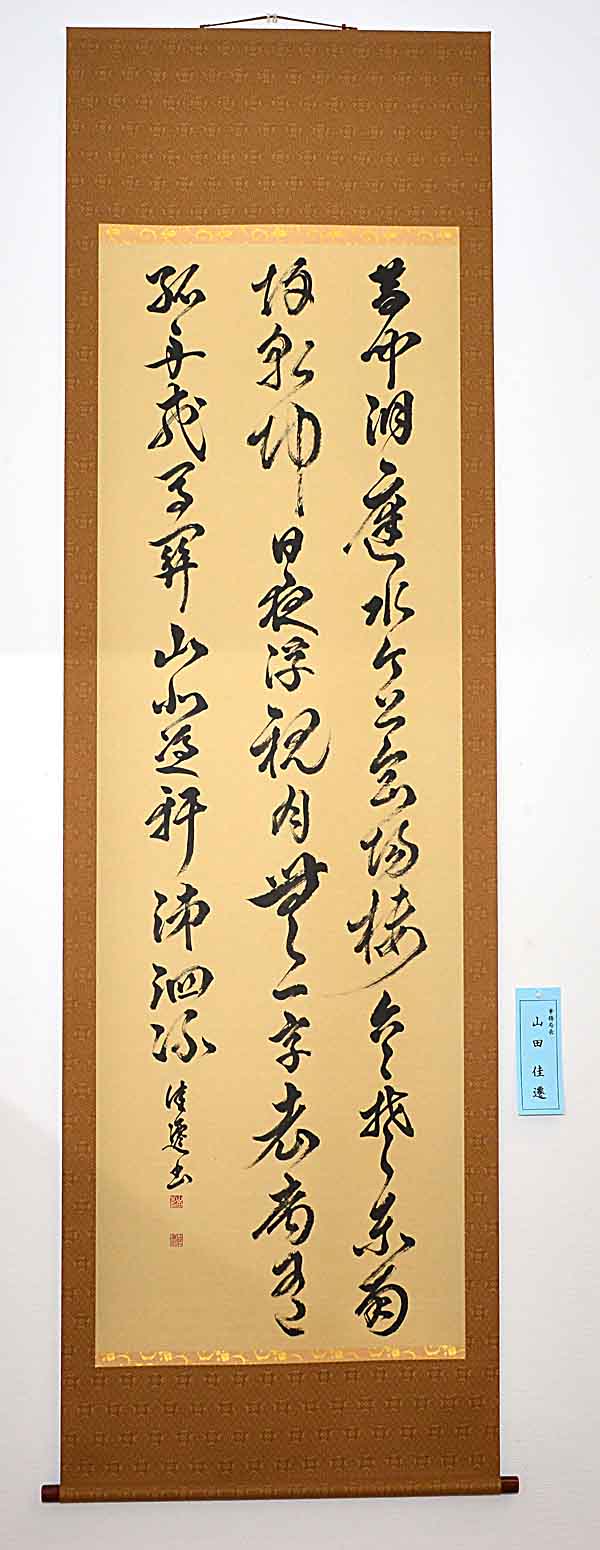 昔聞洞庭水今上岳陽樓呉楚東南
坼乾坤日夜浮親朋無一字老病有
孤舟戎馬關山北憑軒涕泗流 佳遷書
事務局長
山田佳遷